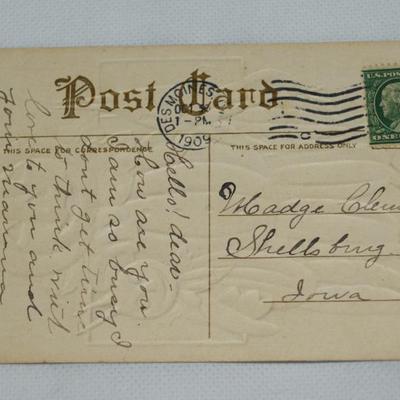 Post Card
DES MOINES
1-PM
1909
U.S. POS
ONE
THIS SPACE FOR CORRESPONDENCE
THIS SPACE FOR ADDRESS ONLY
Hello! dear-
How are you.
I am so busy I
dont get time
to think. with
love to you and
from mamma
Madge Clem
Shellsburg
Iowa